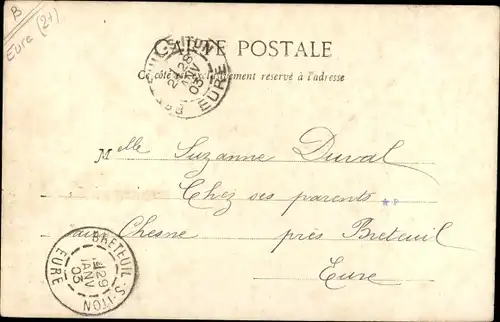 B
Eure (27)
CARTE POSTALE
Ce côté est exclusivement réservé à l'adresse
BRETEUIL-S-ITON
28
JANV
03
EURE
Melle Suzanne Duval
Chez ses parents
★P
au Chesne près Breteuil
Eure
BRETEUIL-S-ITON
29
JANV
03
EURE